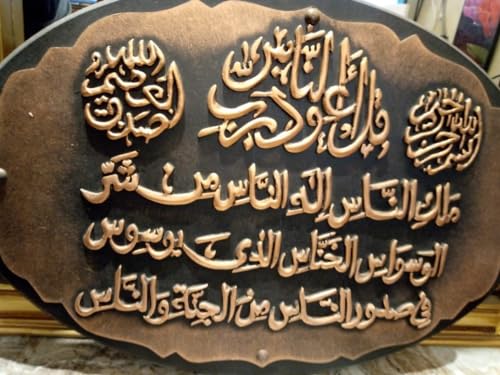 بسم الله الرحمن الرحيم
قل أعوذ برب الناس
صدق الله العظيم
ملك الناس إله الناس من شر
الوسواس الخناس الذي يوسوس
في صدور الناس من الجنة والناس